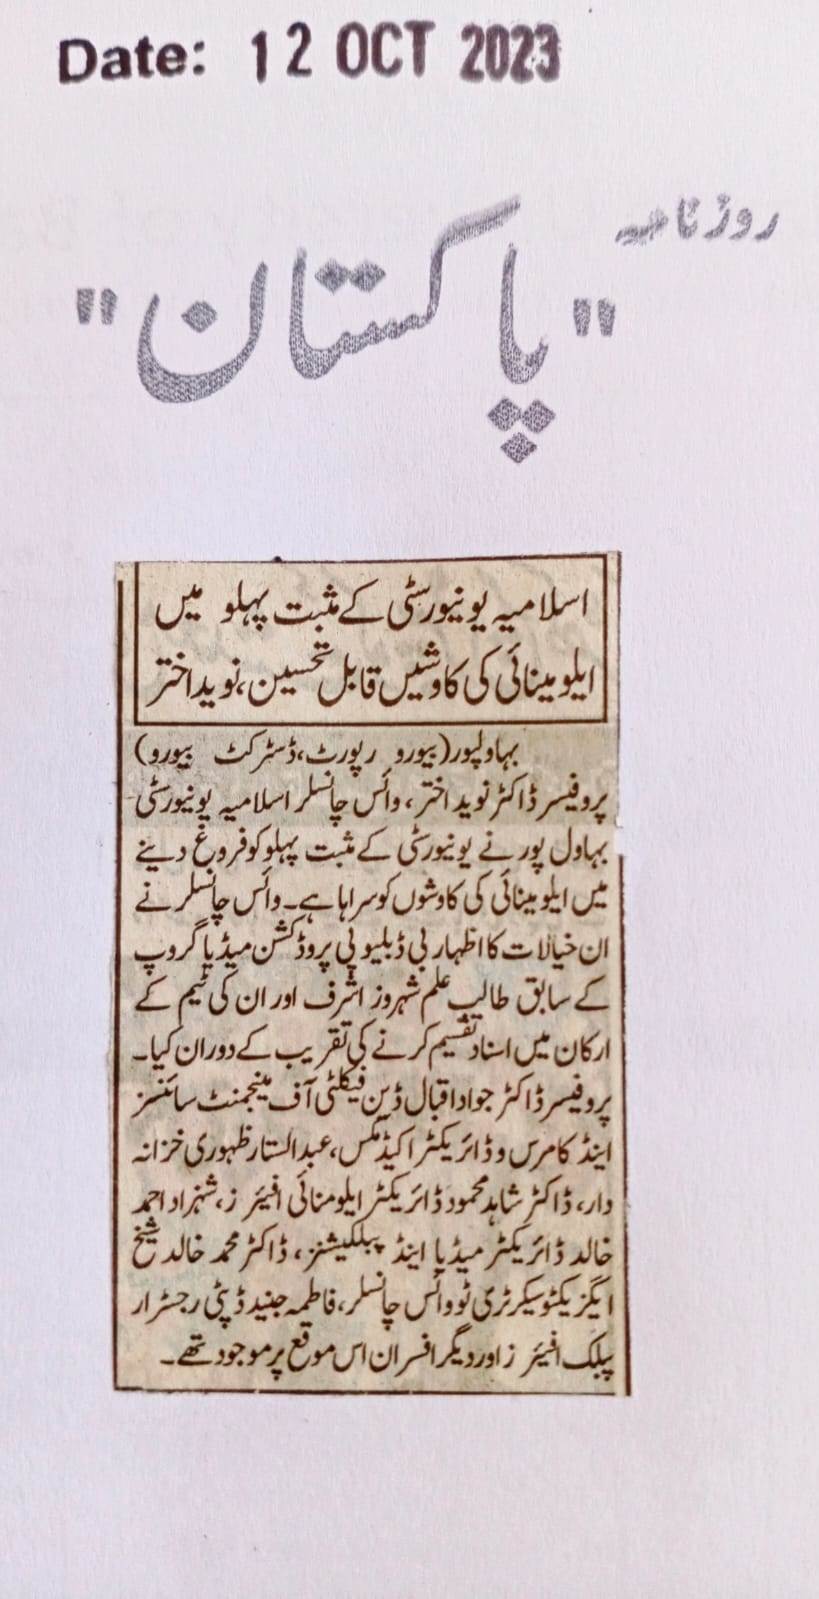 Date: 12 OCT 2023
روزنامہ
"پاکستان"
اسلامیہ یونیورسٹی کے مثبت پہلو میں
ایلومینائی کی کاوشیں قابل تحسین، نوید اختر
بہاولپور (بیورو رپورٹ، ڈسٹرکٹ بیورو)
پروفیسر ڈاکٹر نوید اختر، وائس چانسلر اسلامیہ یونیورسٹی
بہاول پور نے یونیورسٹی کے مثبت پہلو کو فروغ دینے
میں ایلومینائی کی کاوشوں کو سراہا ہے۔ وائس چانسلر نے
ان خیالات کا اظہار بی ڈبلیو پی پروڈکشن میڈیا گروپ
کے سابق طالب علم شہروز اشرف اور ان کی ٹیم کے
ارکان میں اسناد تقسیم کرنے کی تقریب کے دوران کیا۔
پروفیسر ڈاکٹر جواد اقبال ڈین فیکلٹی آف مینجمنٹ سائنسز
اینڈ کامرس و ڈائریکٹر اکیڈمکس، عبدالستار ظہوری خزانہ
دار، ڈاکٹر شاہد محمود ڈائریکٹر ایلومنائی افیئرز، شہزاد احمد
خالد ڈائریکٹر میڈیا اینڈ پبلکیشنز، ڈاکٹر محمد خالد شیخ
ایگزیکٹو سیکرٹری ٹو وائس چانسلر، فاطمہ جنید ڈپٹی رجسٹرار
پبلک افیئرز اور دیگر افسران اس موقع پر موجود تھے۔